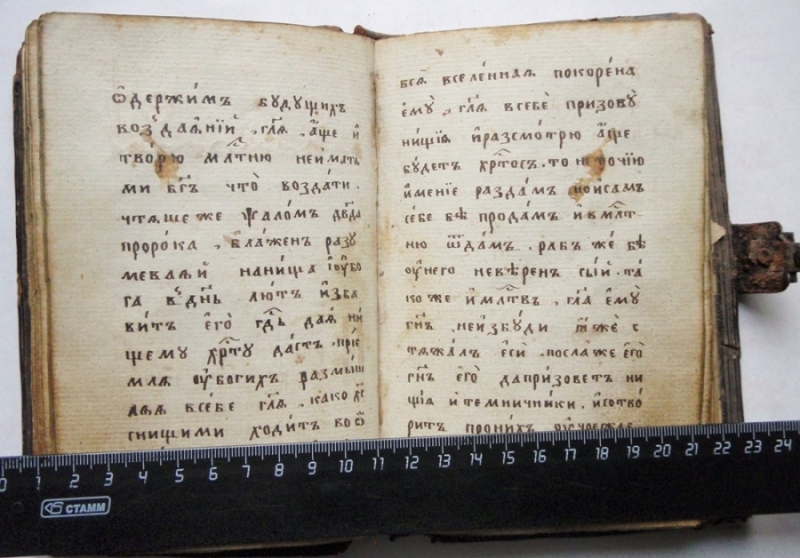 ѿдержи́мъ бꙋдꙋщихъ
воздаѧ́нїи҆, гл҃ѧ, а҆́ще и҆
творю̀ мл҃тню неи́мать
ми бг҃ъ что̀ воздати.
чтѧ́ше же ѱало́мъ дв҃да
проро́ка, бл҃аже́нъ разꙋ
мева́ѧи҆ на ни́ща и҆ ᲂу҆бо
га въ дн҃ь лю́тъ и҆зба
витъ є҆го̀ гд҃ь даѧ́и ни
щемꙋ хр҃тꙋ да́стъ. прїе́
млѧ ᲂу҆бо́гихъ размы́ш
лѧѧ в себѐ гл҃ѧ, ка́ко хс҃
с ни́щими хо́дитъ во ѿ
всѧ̀ вселе́ннаѧ покоре́на
є҆мꙋ̀, гл҃ѧ в себѐ призовꙋ̀
ни́щїѧ и҆ разсмо́трю а҆́ще
бꙋ́детъ хр҃то́съ. то не то́чїю
и҆мѣ́нїе разда́мъ но и҆ самъ
себѐ бѣ прода́мъ и҆ в мл҃т
ню ѿда́мъ. рабъ же́ бѣ
ᲂу҆ него̀ невѣ́ренъ сы́й. та́
ко же и҆ мл҃твъ, гл҃а є҆мꙋ̀
гн҃ъ, не и҆збꙋ́ди же с
тѧжа́лъ є҆сѝ. посла́ же є҆го̀
гн҃ъ є҆го̀ да призове́тъ ни
щїѧ и҆ темни́чники, и҆ сотво
ри́тъ про ни́хъ ᲂу҆чрежде
0 1 2 3 4 5 6 7 8 9 10 11 12 13 14 15 16 17 18 19 20 21 22 23 24
СТАММ